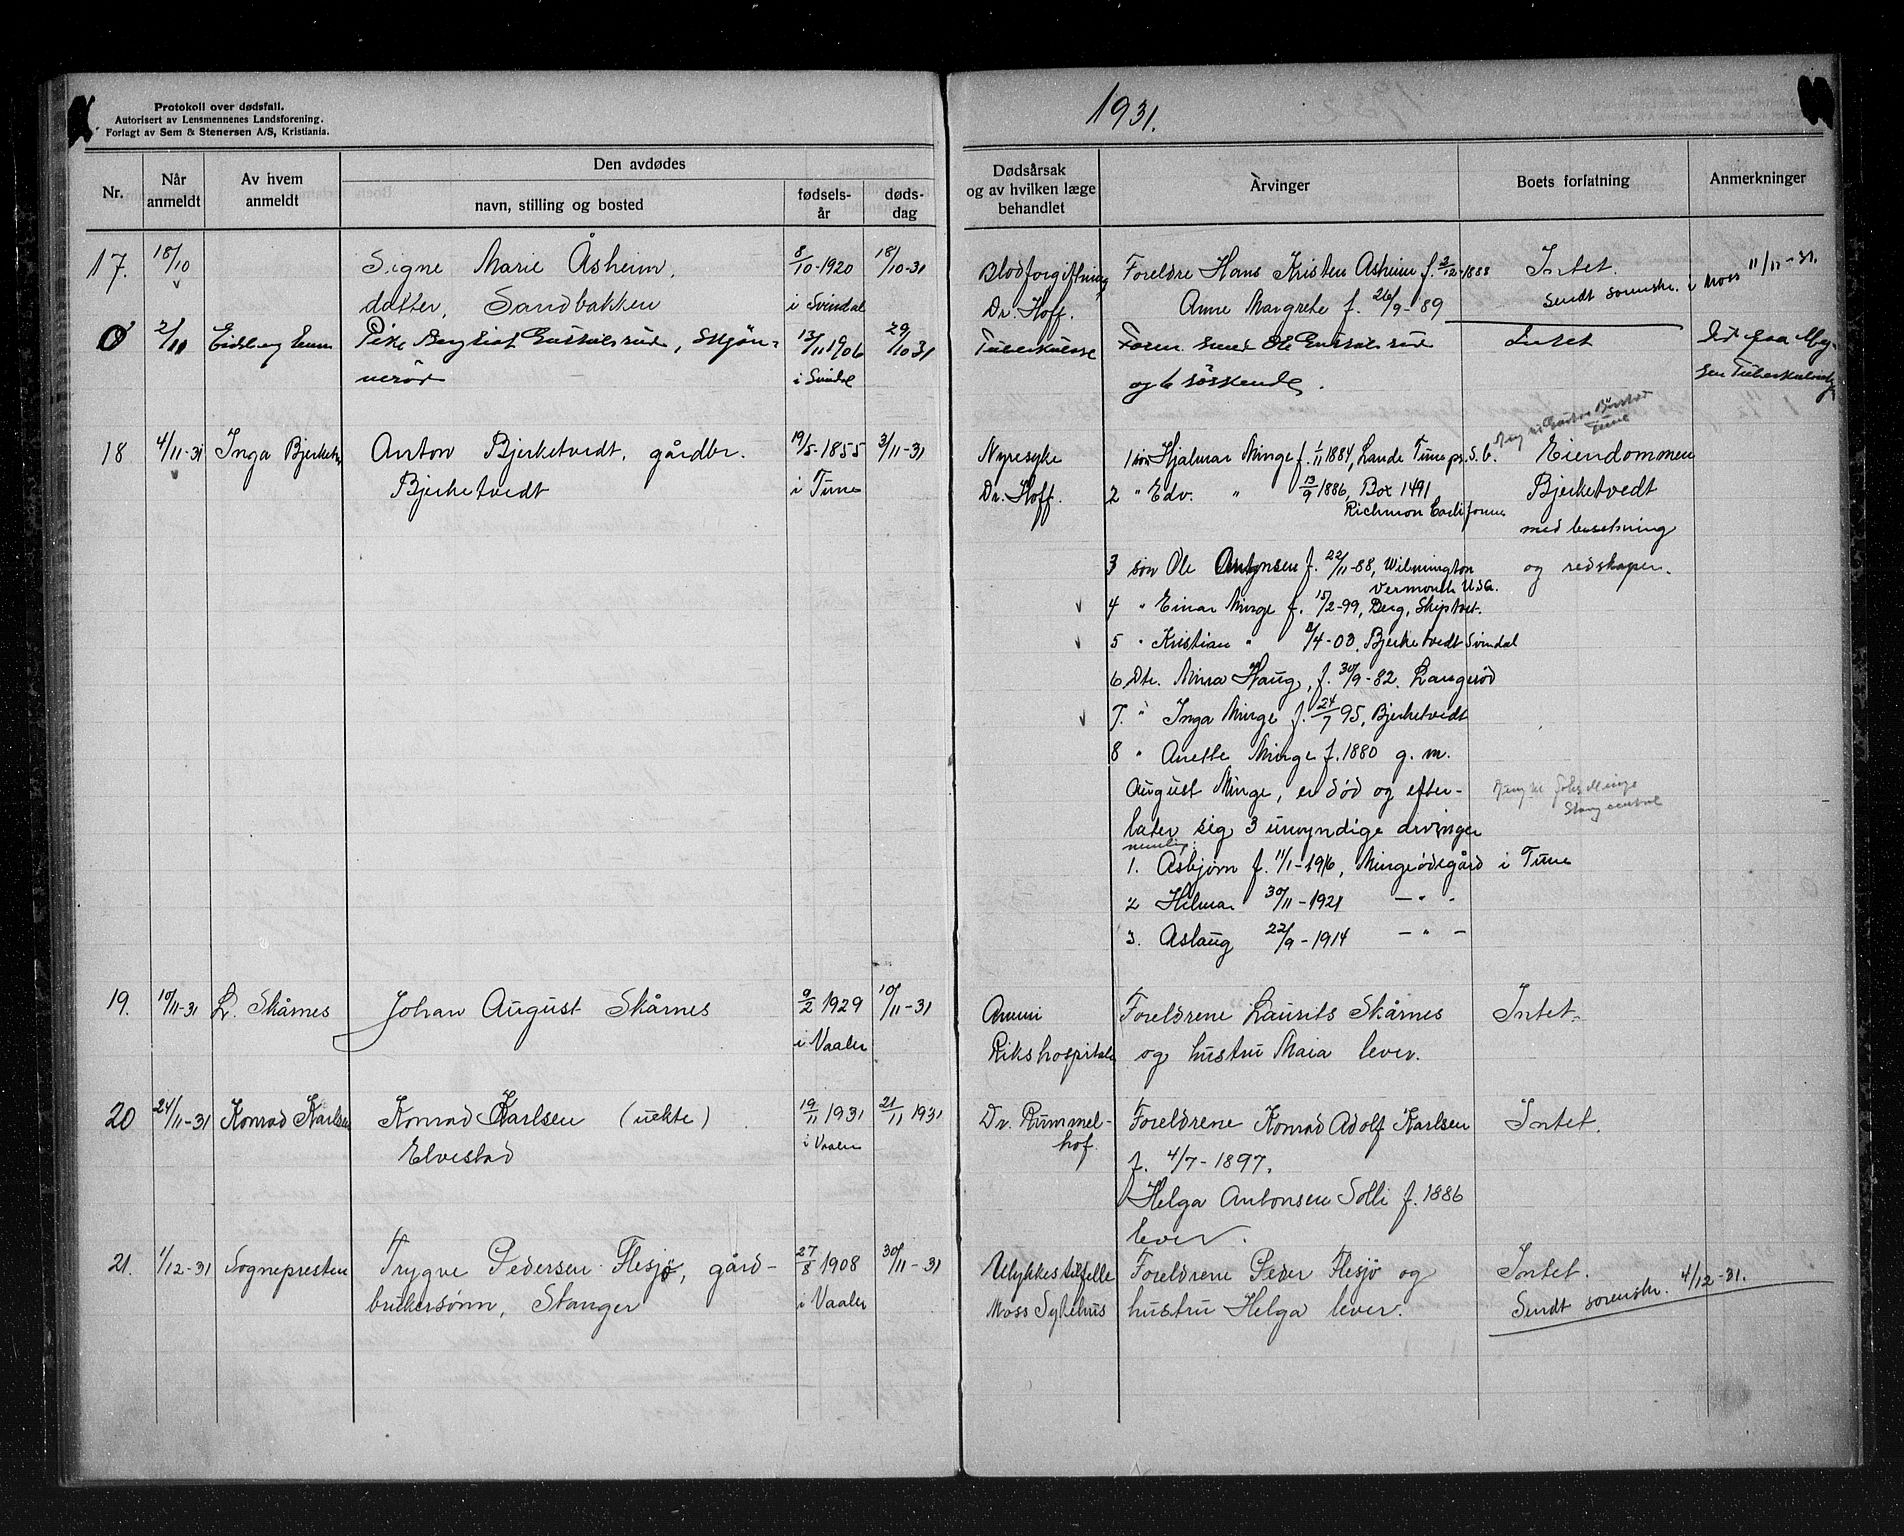 Protokoll over dødsfall.
Autorisert av Lensmennenes Landsforening.
Forlagt av Sem & Stenersen A/S, Kristiania.
1931.
Nr.
Når anmeldt
Av hvem anmeldt
Den avdødes
navn, stilling og bosted
fødsels-år
døds-dag
Dødsårsak og av hvilken læge behandlet
Arvinger
Boets forfatning
Anmerkninger
17. 18/10 Signe Marie Åsheim, 8/10-1920 18/10-31 Blodforgiftning Foreldre Hans Kristen Åsheim f. 3/12-1888 Intet.
datter, Sandbakken i Svindal Dr. Hoff. Anne Margrete f. 26/9-89 Sendt sorenskr. i Moss 11/11-31.
0 2/11 Eidsberg Pike Bergliot 13/11 1906 29/10 31 Tuberkulose Ole Intet
nerød i Svindal og 6 søskende. Tuberkulosehj
18 4/11-31 Inga Bjerketv. Anton Bjerketvedt, gårdbr. 19/5-1855 3/11-31 Nyresyke 1 søn Hjalmar Minge f. 1/11 1884, Lande Tune p.s.b. Eiendommen
Bjerketvedt i Tune Dr. Hoff. 2 " Edv. " 13/9 1886, Box 1491 Bjerketvedt
Richmon California med besetning
3 søn Ole Antonsen f. 22/11-88, Wilmington og redskaper.
Vermonth USA.
4 " Einar Minge f. 15/2-99, Berg, Skiptvet.
5 " Kristian " /4-03, Bjerketvedt Svindal
6 Dtr. Mina Haug, f. 30/9-82. Langerød
7. " Inga Minge f. 24/7 95, Bjerketvedt
8 " Anette Minge f. 1880 g. m.
August Minge, er død og efter-
later sig 3 umyndige arvinger
nemlig:
1. Asbjørn f. 11/1-1916, Mingeødegård i Tune
2 Hilmar 30/11-1921 - " -
3. Aslaug 22/9-1914 - " -
19. 10/11-31 L. Skårnes Johan August Skårnes 9/2 1929 10/11-31 Foreldrene Laurits Skårnes Intet.
i Vaaler Rikshospitale og hustru Maia lever.
20 24/11-31 Konrad Karlsen Konrad Karlsen (uekte) 19/11 1931 21/11 1931 Dr. Rummel- Foreldrene Konrad Adolf Karlsen Intet.
Elvestad i Vaaler hof. f. 4/7-1897.
Helga Antonsen Solli f. 1886
lever.
21. 1/12-31 Sognepresten Trygve Pedersen Flesjø, gård- 27/8 1908 30/11-31 Ulykkestilfelle Foreldrene Peder Flesjø og Intet.
brukersønn, Stanger i Vaaler Moss Sykehus hustru Helga lever. Sendt sorenskr. 4/12-31.